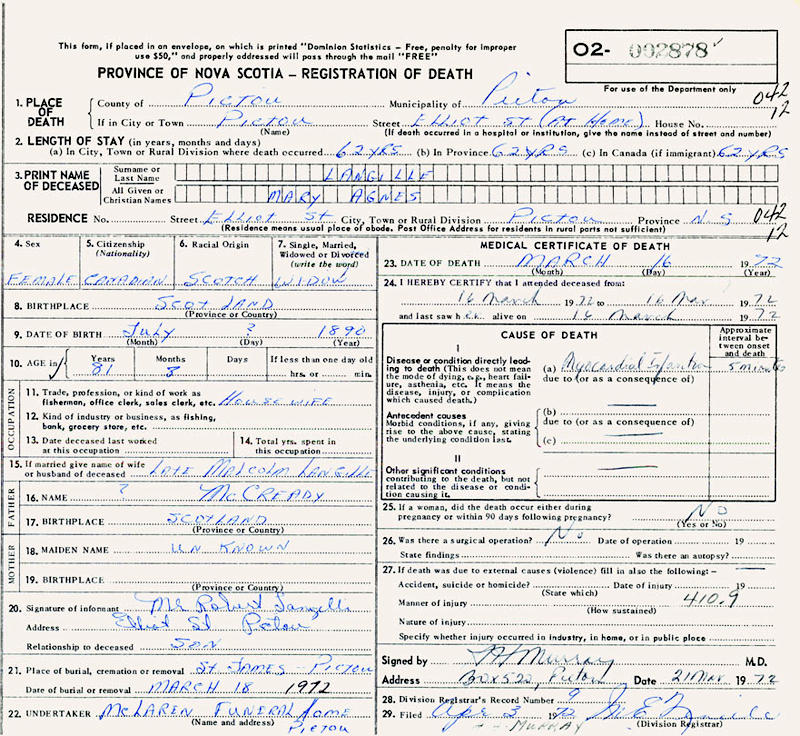 This form, if placed in an envelope, on which is printed "Dominion Statistics – Free, penalty for improper
use $50," and properly addressed will pass through the mail "FREE"
O2- 002878
PROVINCE OF NOVA SCOTIA – REGISTRATION OF DEATH
For use of the Department only
1. PLACE OF DEATH County of PICTOU Municipality of Pictou 042
If in City or Town PICTOU Street Elliot St (At Home) House No. 12
(Name) (If death occurred in a hospital or institution, give the name instead of street and number)
2. LENGTH OF STAY (in years, months and days)
(a) In City, Town or Rural Division where death occurred 62 YRS (b) In Province 62 YRS (c) In Canada (if immigrant) 62 YRS
3. PRINT NAME OF DECEASED
Surname or Last Name LANGILLE
All Given or Christian Names MARY AGNES
RESIDENCE No. Street Elliot St City, Town or Rural Division Pictou Province N S 042
(Residence means usual place of abode. Post Office Address for residents in rural parts not sufficient) 12
4. Sex 5. Citizenship (Nationality) 6. Racial Origin 7. Single, Married, Widowed or Divorced (write the word)
FEMALE CANADIAN SCOTCH WIDOW
8. BIRTHPLACE SCOTLAND
(Province or Country)
9. DATE OF BIRTH July ? 1890
(Month) (Day) (Year)
10. AGE in Years Months Days If less than one day old
81 8 hrs. or min.
OCCUPATION
11. Trade, profession, or kind of work as fisherman, office clerk, sales clerk, etc. HOUSEWIFE
12. Kind of industry or business, as fishing, bank, grocery store, etc.
13. Date deceased last worked at this occupation 14. Total yrs. spent in this occupation
15. If married give name of wife or husband of deceased LATE MALCOLM LANGILLE
FATHER
16. NAME ? McCREADY
17. BIRTHPLACE SCOTLAND
(Province or Country)
MOTHER
18. MAIDEN NAME UNKNOWN
19. BIRTHPLACE
(Province or Country)
20. Signature of informant Robert Langille
Address Elliot St Pictou
Relationship to deceased SON
21. Place of burial, cremation or removal ST JAMES - PICTOU
Date of burial or removal MARCH 18 1972
22. UNDERTAKER McLAREN FUNERAL HOME
(Name and address) PICTOU
MEDICAL CERTIFICATE OF DEATH
23. DATE OF DEATH MARCH 16 1972
(Month) (Day) (Year)
24. I HEREBY CERTIFY that I attended deceased from:
16 March 1972 to 16 Mar 1972
and last saw h alive on 16 March 1972
CAUSE OF DEATH
Approximate interval between onset and death
I
Disease or condition directly leading to death (This does not mean the mode of dying, e.g., heart failure, asthenia, etc. It means the disease, injury, or complication which caused death.)
(a) Myocardial Infarction 5 minutes
due to (or as a consequence of)
Antecedent causes
Morbid conditions, if any, giving rise to the above cause, stating the underlying condition last.
(b)
due to (or as a consequence of)
(c)
II
Other significant conditions contributing to the death, but not related to the disease or condition causing it.
25. If a woman, did the death occur either during pregnancy or within 90 days following pregnancy? No
(Yes or No)
26. Was there a surgical operation? No Date of operation 19
State findings Was there an autopsy?
27. If death was due to external causes (violence) fill in also the following: –
Accident, suicide or homicide? Date of injury 19
(State which)
Manner of injury 410.9
(How sustained)
Nature of injury
Specify whether injury occurred in industry, in home, or in public place
Signed by Murray M.D.
Address Box 520, Pictou Date 21 Mar 1972
28. Division Registrar's Record Number 9
29. Filed Apr 3 1972
MURRAY (Division Registrar)